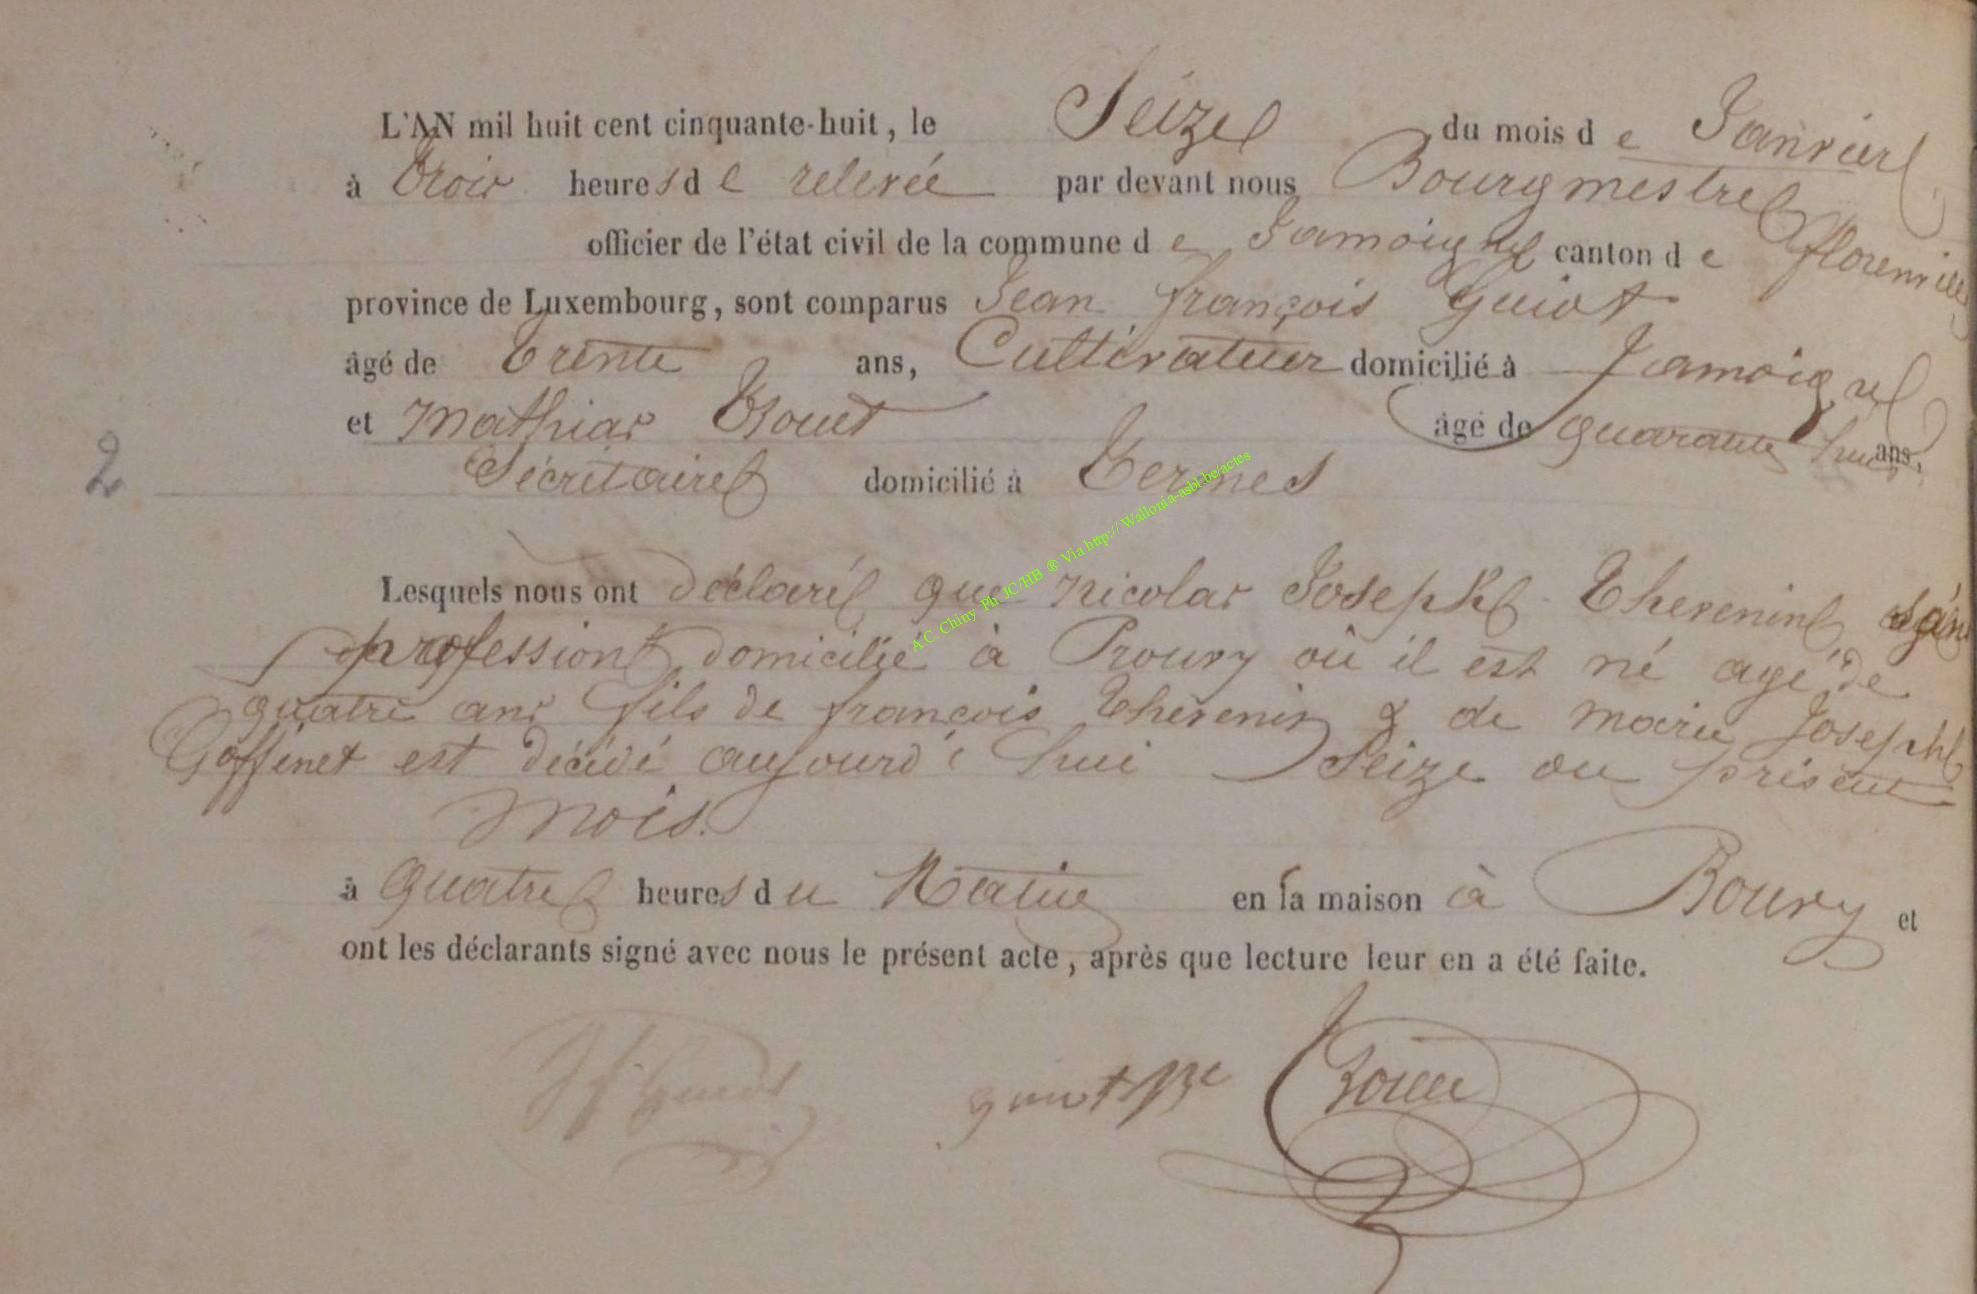 L'AN mil huit cent cinquante-huit, le Seize du mois de Janvier
à trois heures de relevée par devant nous Bourgmestre
officier de l'état civil de la commune de Jamoigne canton de florenville
province de Luxembourg, sont comparus Jean françois Guiot
âgé de trente ans, Cultivateur domicilié à Jamoigne
et Mathias âgé de quarante huit ans,
Sécrétaire domicilié à Termes
2
A.C. Chiny Ph JC/HB ® Via http://Wallonia-asbl-be/actes
Lesquels nous ont déclaré que Nicolas Joseph Thevenin
profession domicilié à Prouvy où il est né agé de
quatre ans fils de françois Thevenin & de marie Joseph
Goffinet est décédé aujourd'hui Seize du présent
mois.
à quatre heures du Matin en sa maison à Prouvy et
ont les déclarants signé avec nous le présent acte, après que lecture leur en a été faite.
guiot